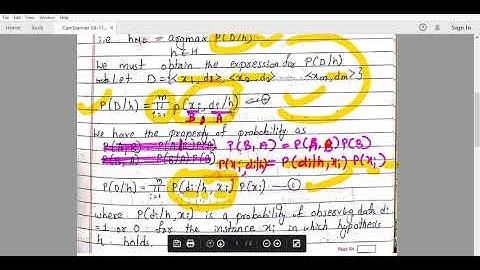 Home Tools CamScanner 04-11... Sign In
i.e hMD = argmax P(D/h)
h∈H
We must obtain the expression for P(D/h)
Let D = {<x1, d1>, <x2, d2> ..... <xm, dm>}
P(D/h) = m∏i=1 P(xi, di/h) —
B, A
We have the property of probability as
P(B, A) = P(A, B) P(B)
P(xi, di/h) = P(di/h, xi) P(xi)
P(D/h) = m∏i=1 P(di/h, xi) P(xi) —
where P(di/h, xi) is a probability of observing data di
= 1 or 0 for the instance xi in which hypothesis
h holds.